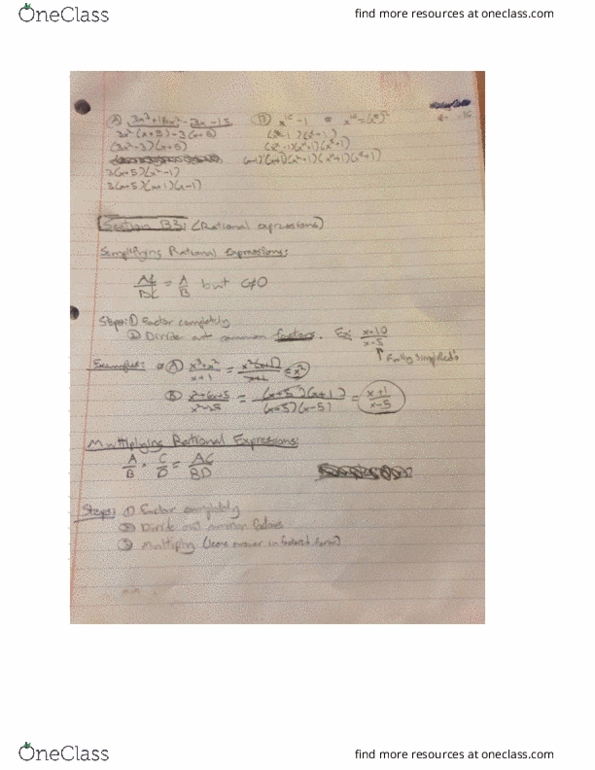 OneClass
find more resources at oneclass.com
Ⓐ 3x³+15x²-3x-15 Ⓑ x¹⁶-1
3x²(x+5)-3(x+5) (x⁸-1)(x⁸+1)
(3x²-3)(x+5)
3(x+5)(x²-1)
3(x+5)(x+1)(x-1)
Section B3: (Rational expressions)
Simplifying Rational Expressions:
AC/BC = A/B but C≠0
Steps: ① Factor completely
② Divide out common factors. Ex: x+10/x-5
↑ Fully simplified
Examples: Ⓐ x³+x²/x+1 = x²(x+1)/x+1 = x²
Ⓑ x²+6x+5/x²-25 = (x+5)(x+1)/(x+5)(x-5) = x+1/x-5
Multiplying Rational Expressions:
A/B · C/D = AC/BD
Steps: ① Factor completely
② Divide out common factors
③ Multiply (leave answer in factored form)
OneClass
find more resources at oneclass.com